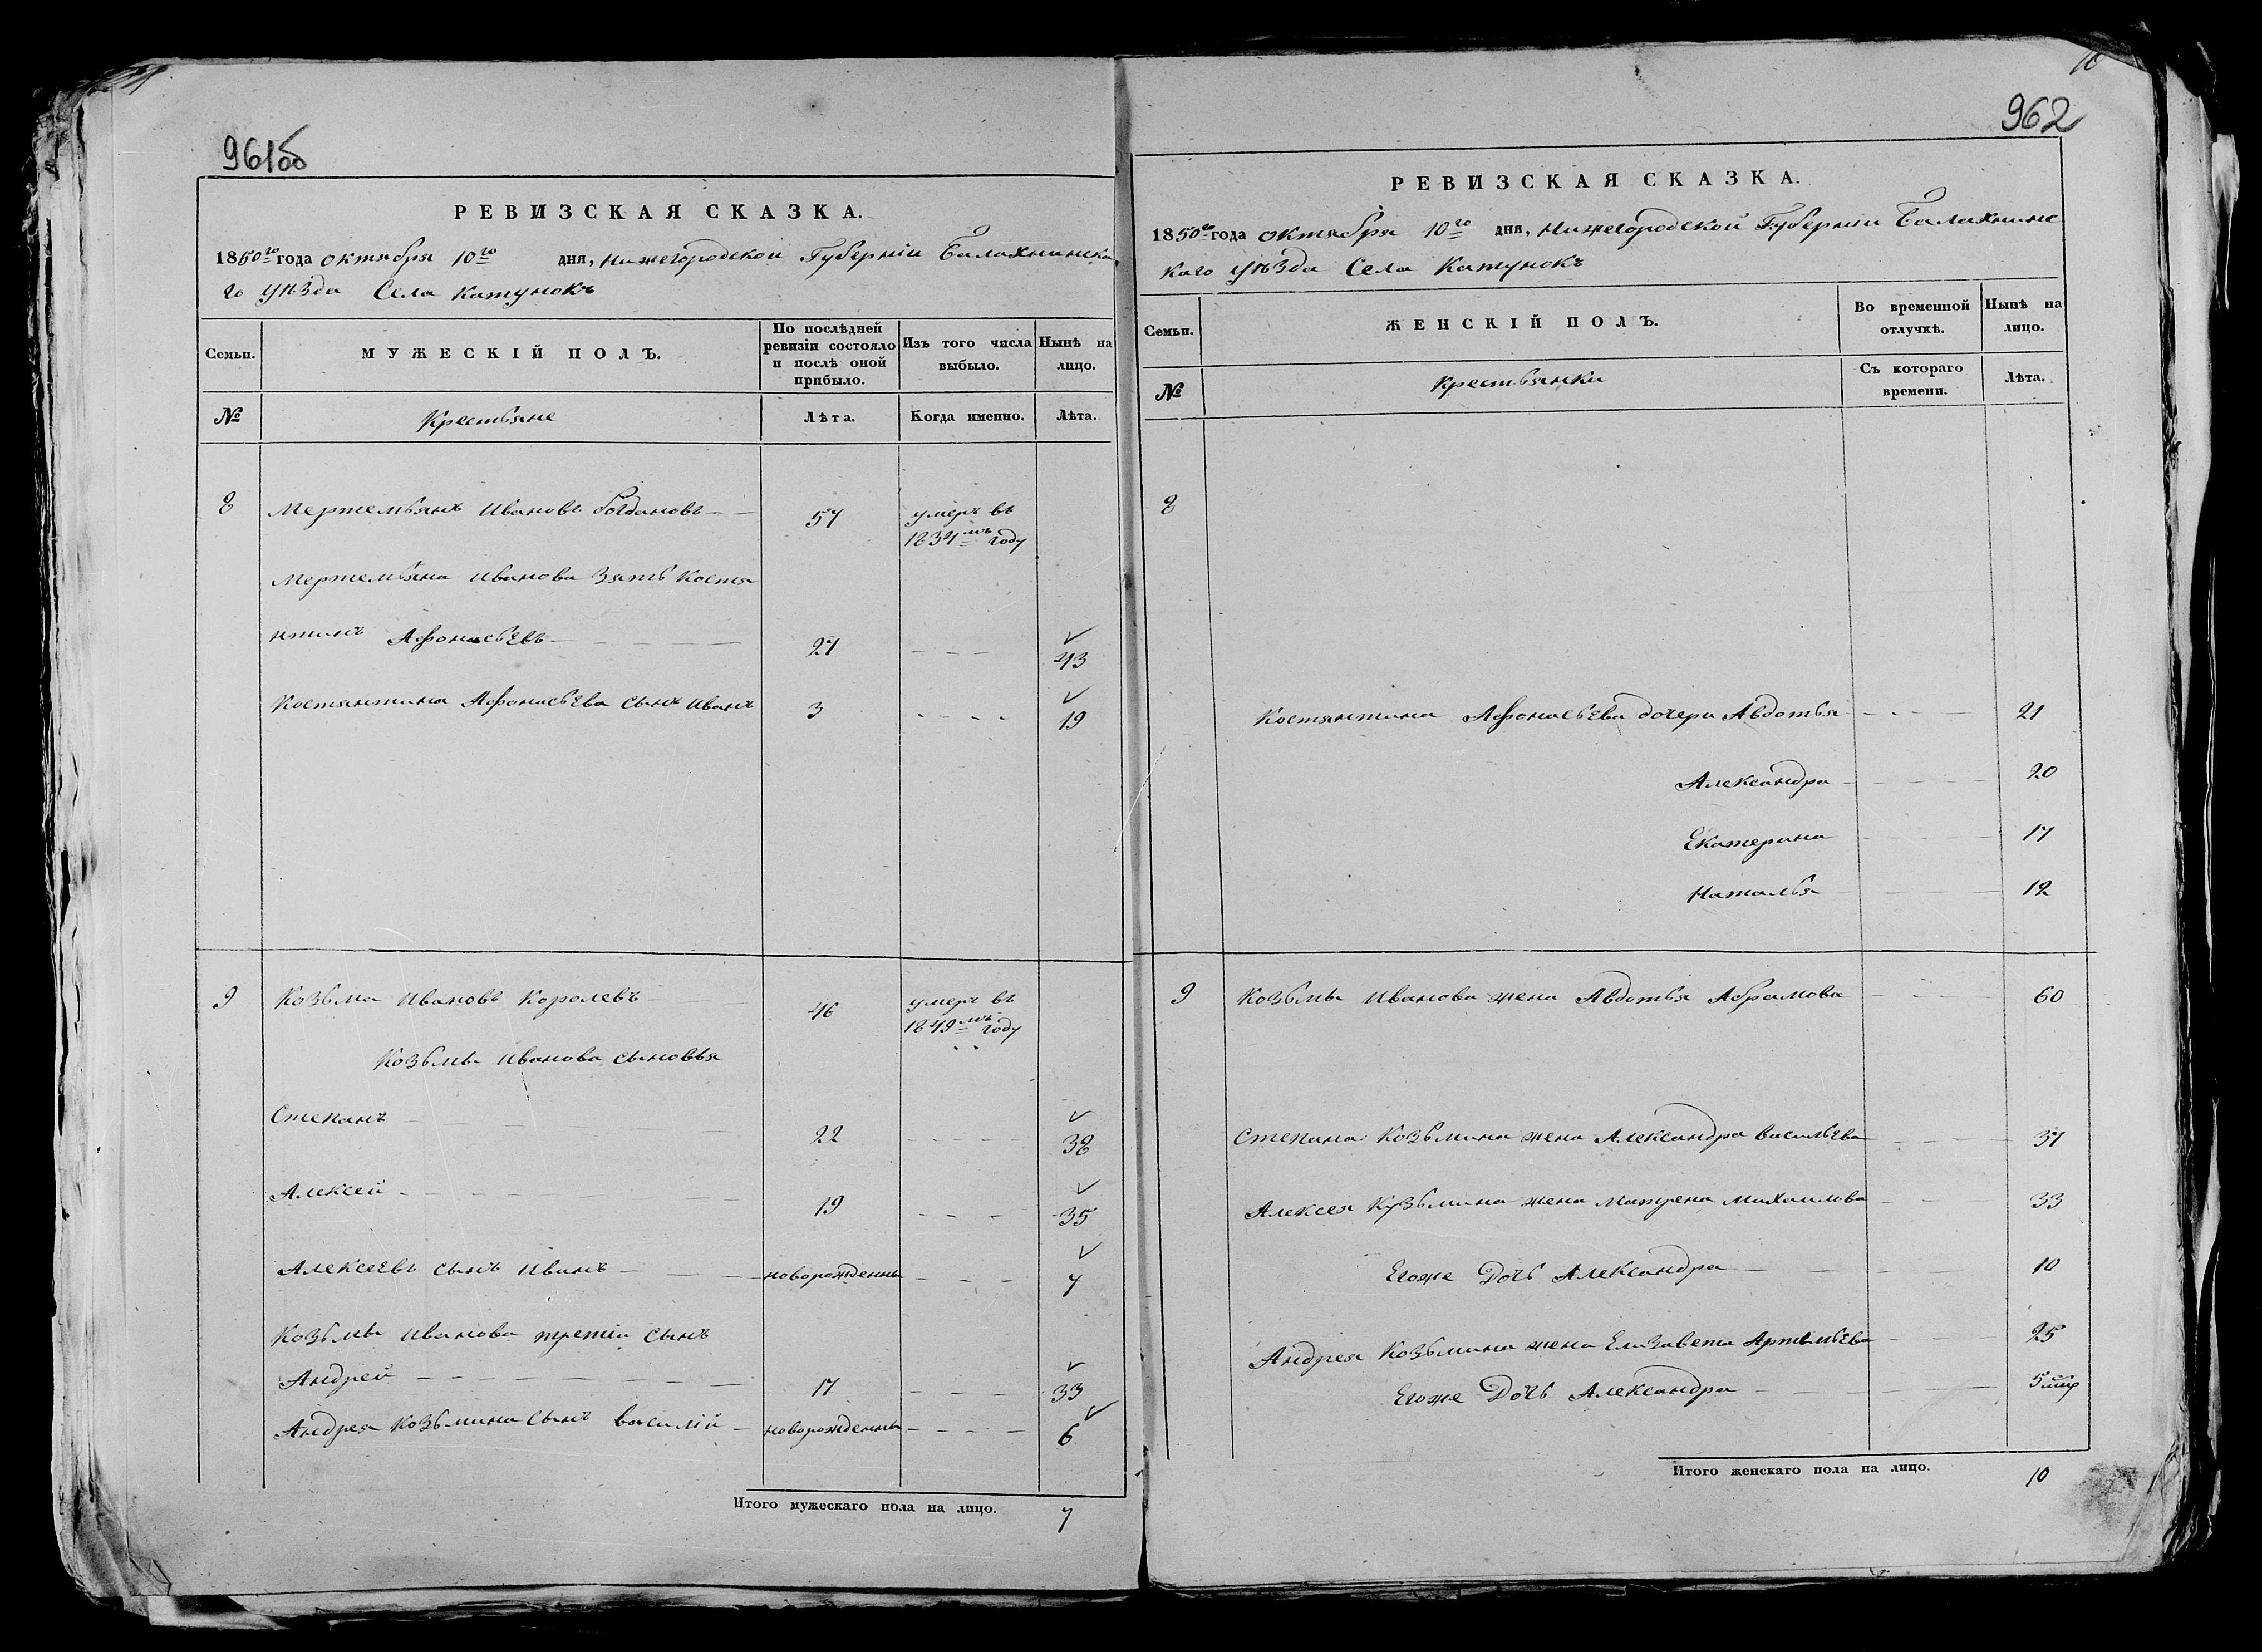 961об
РЕВИЗСКАЯ СКАЗКА.
1850го года октября 10го дня, Нижегородской Губерніи Балахнинска
го уѣзда Села Катунокъ
Семьи.
МУЖЕСКІЙ ПОЛЪ.
По послѣдней ревизіи состояло и послѣ оной прибыло.
Изъ того числа выбыло.
Нынѣ на лицо.
№
Крестьяне
Лѣта.
Когда именно.
Лѣта.
8 Мертемьянъ Ивановъ Богдановъ 57 умеръ въ
1834мъ году
Мертемьяна Иванова Зять Костя
нтинъ Афонасьевъ 27 43
Костянтина Афонасьева сынъ Иванъ 3 19
9 Козьма Ивановъ Королевъ 46 умеръ въ
1849мъ году
Козьмы Иванова сыновья
Степанъ 22 38
Алексей 19 35
Алексеевъ сынъ Иванъ новорожденны 7
Козьмы Иванова третіи сынъ
Андрей 17 33
Андрея Козьмина сынъ василій новорожденны 6
Итого мужескаго пола на лицо. 7
962
РЕВИЗСКАЯ СКАЗКА.
1850го года октября 10го дня, Нижегородской Губерніи Балахнинс
каго уѣзда Села Катунокъ
Семьи.
ЖЕНСКІЙ ПОЛЪ.
Во временной отлучкѣ.
Нынѣ на лицо.
№
Крестьянки
Съ котораго времени.
Лѣта.
8
Костянтина Афонасьева дочери Авдотья 21
Александра 20
Екатерина 17
Наталья 12
9 Козьмы Иванова жена Авдотья Абрамова 60
Степана Козьмина жена Александра васильева 37
Алексея Кузьмина жена Матрена Михаилова 33
Егоже Дочь Александра 10
Андрея Козьмина жена Елизавета Артемьева 25
Егоже Дочь Александра 5
Итого женскаго пола на лицо. 10